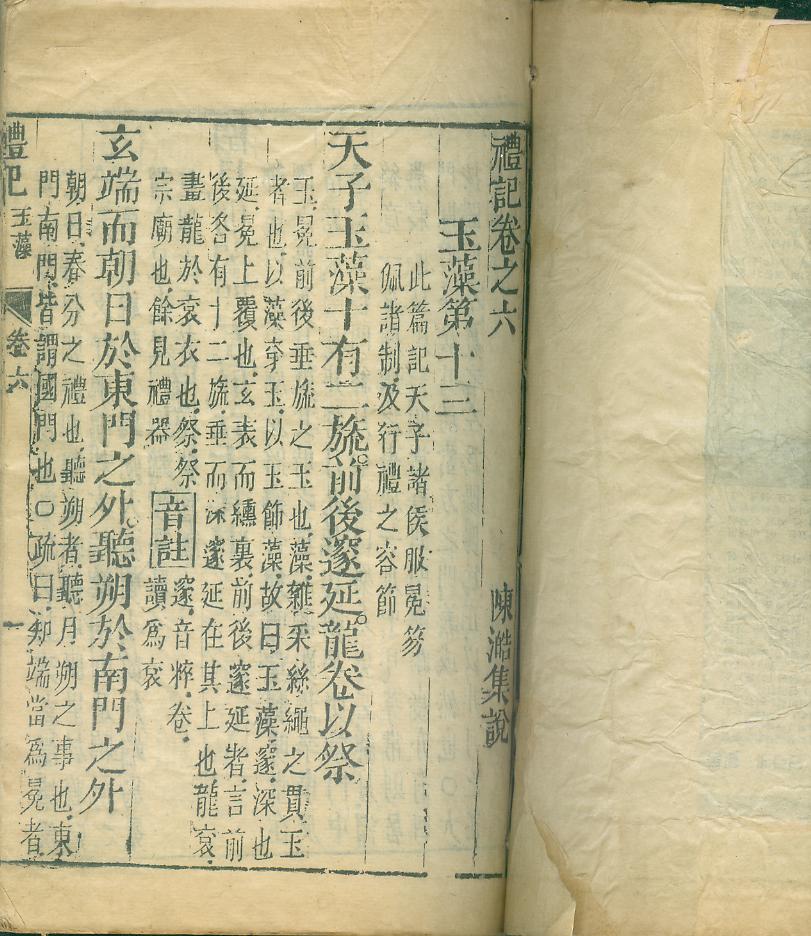 禮記卷之六
陳澔集說
玉藻第十三
此篇記天子諸侯服冕笏
佩諸制及行禮之容節
天子玉藻十有二旒。前後邃延。龍卷以祭
玉、冕前後垂旒之玉也、藻、雜采絲繩之貫玉
者也、以藻穿玉、以玉飾藻、故曰玉藻、邃、深也
延、冕上覆也、玄表而纁裏、前後邃延者、言前
後各有十二旒、垂而深邃、延在其上也、龍袞、
畫龍於袞衣也、祭、祭
宗廟也、餘見禮器
音註
邃、音粹、卷、
讀爲袞
玄端而朝日於東門之外。聽朔於南門之外
朝日、春分之禮也、聽朔者、聽月朔之事也、東
門南門、皆謂國門也○疏曰、知端當爲冕者
禮記
玉藻
卷六
一